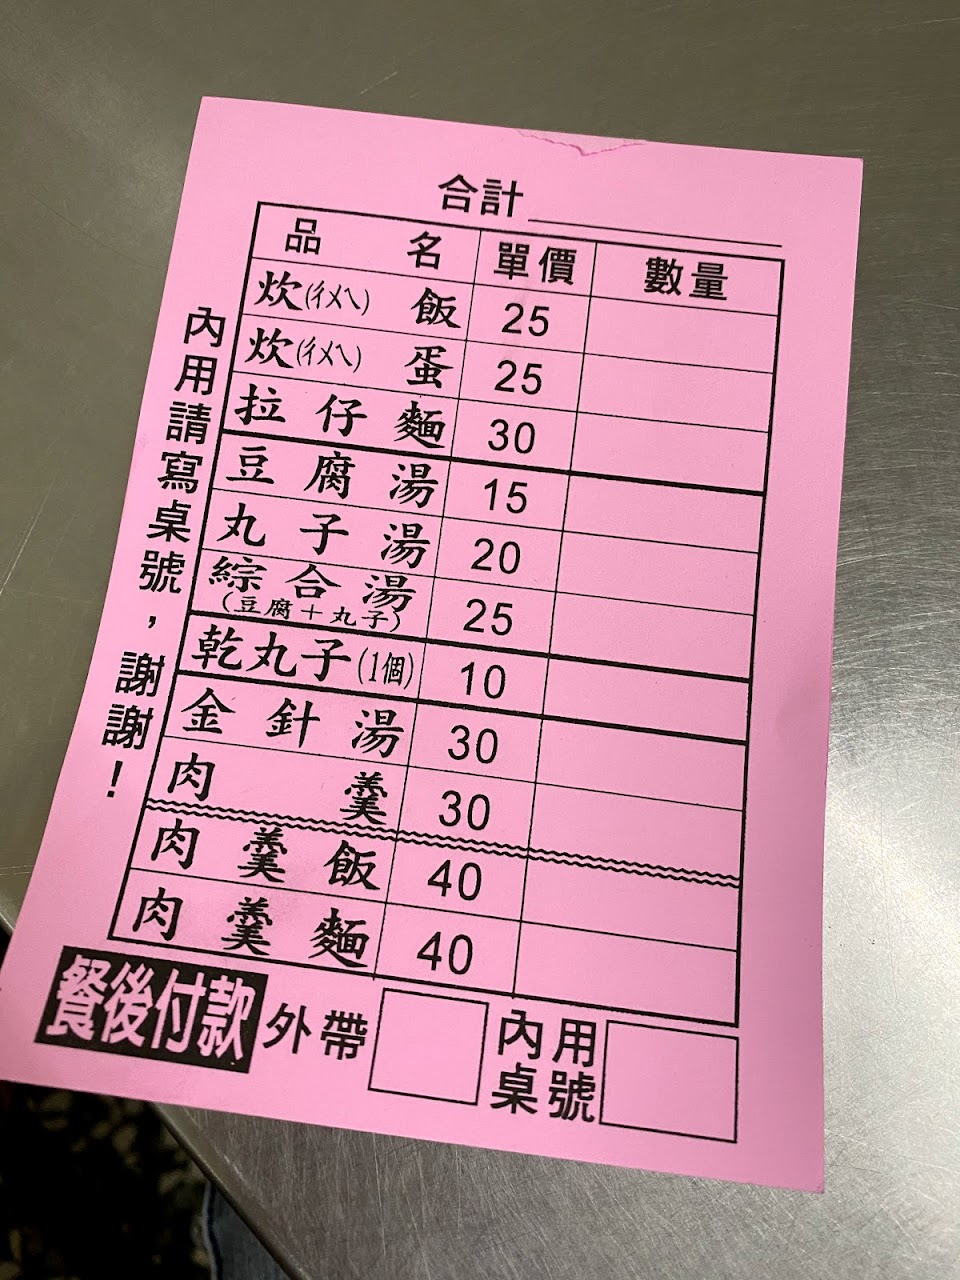 合計
品名 單價 數量
炊(ㄔㄨㄟ)飯 25
炊(ㄔㄨㄟ)蛋 25
拉仔麵 30
豆腐湯 15
丸子湯 20
綜合湯 25
(豆腐+丸子)
乾丸子(1個) 10
金針湯 30
肉羹 30
肉羹飯 40
肉羹麵 40
內用請寫桌號，謝謝！
餐後付款 外帶 內用
桌號